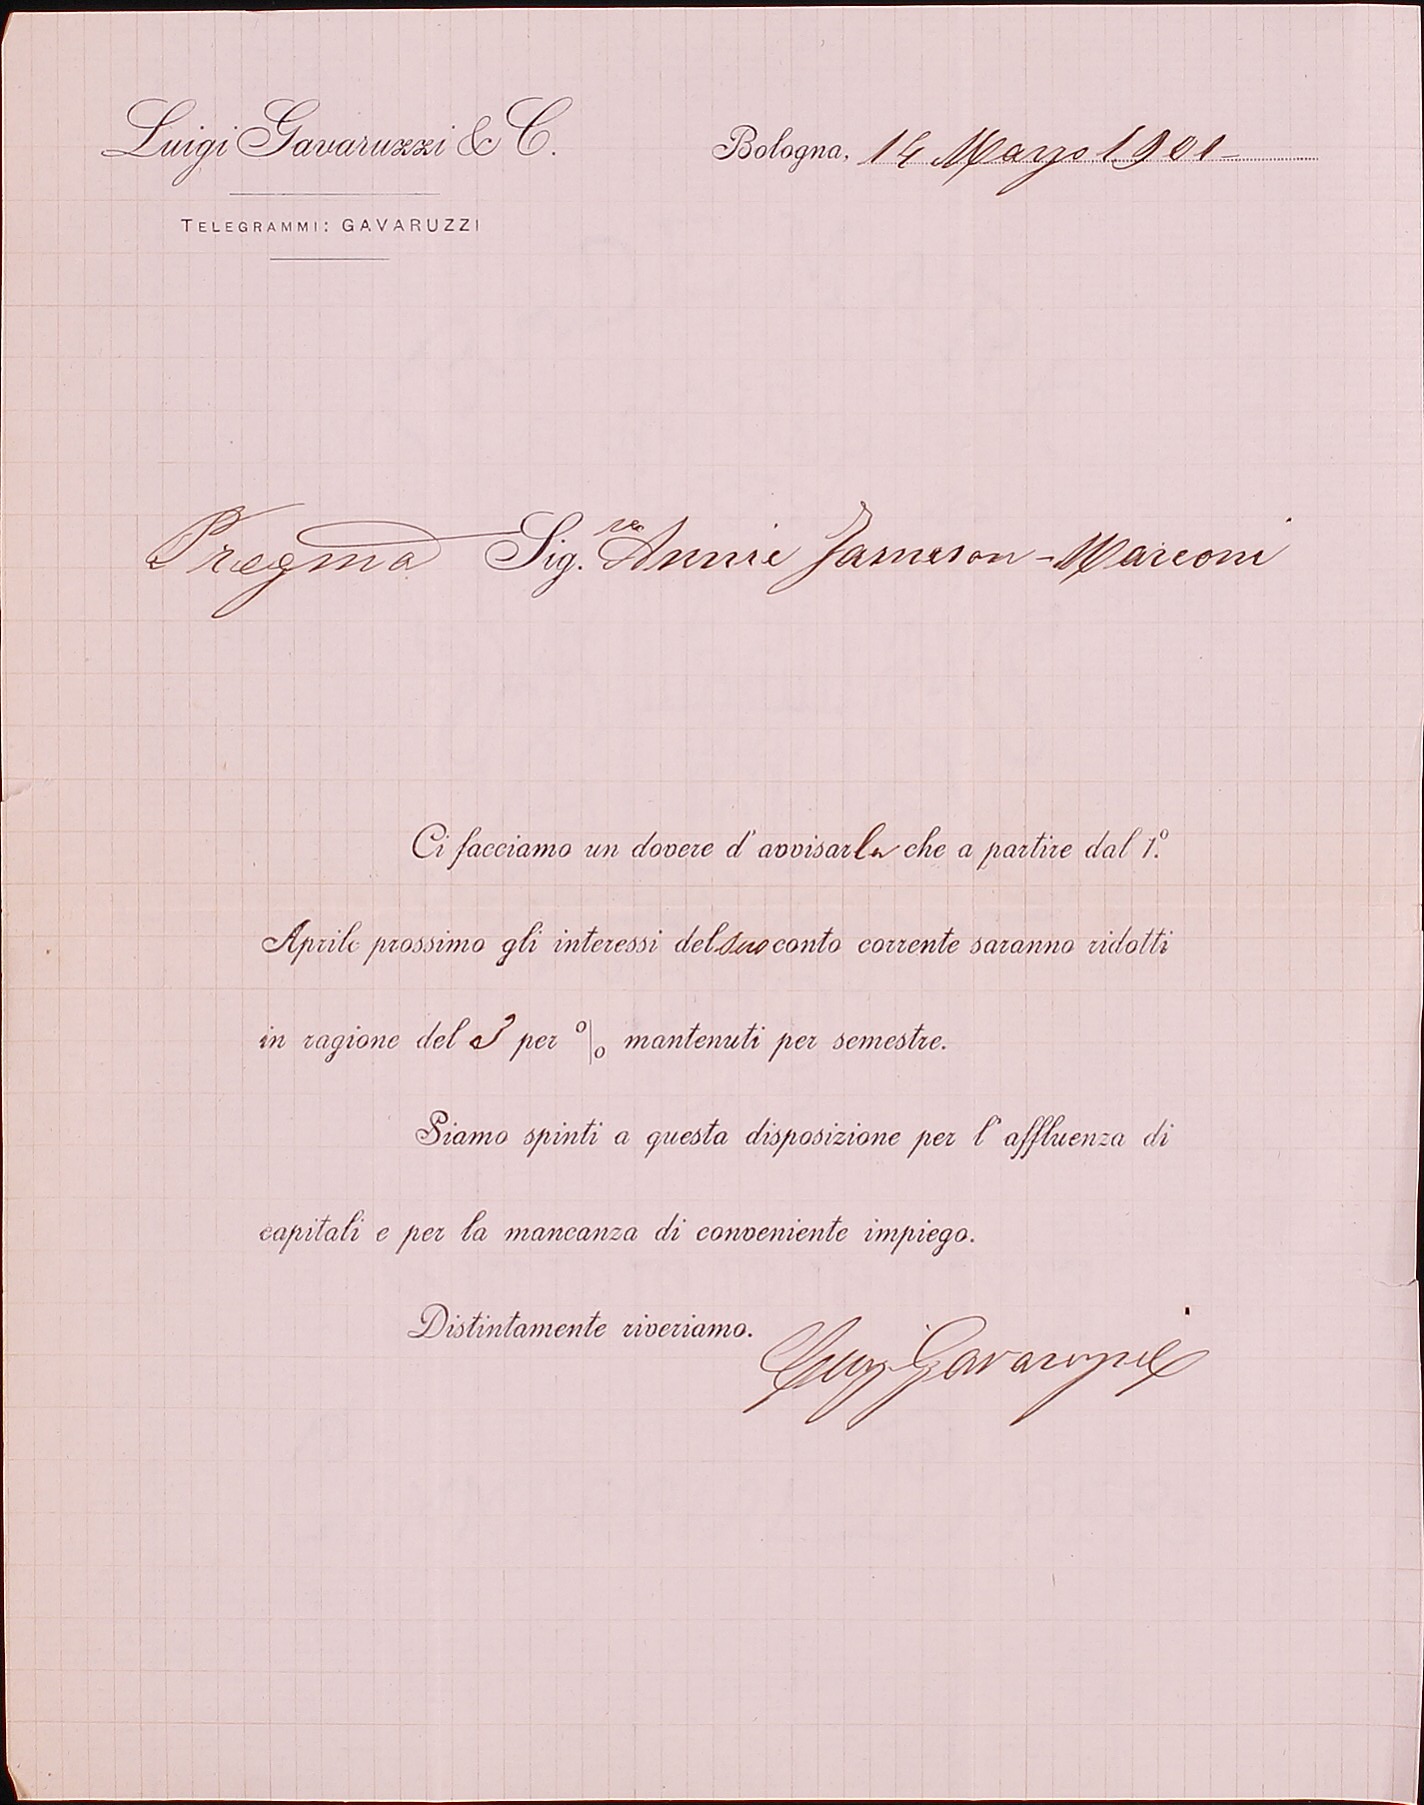 Luigi Gavaruzzi & C.
Bologna, 14 Marzo 1901
TELEGRAMMI: GAVARUZZI
Pregma Sig.ra Annie Jameson-Marconi
Ci facciamo un dovere d'avvisarla che a partire dal 1.º
Aprile prossimo gli interessi del suo conto corrente saranno ridotti
in ragione del 3 per % mantenuti per semestre.
Siamo spinti a questa disposizione per l'affluenza di
capitali e per la mancanza di conveniente impiego.
Distintamente riveriamo.
Luigi Gavaruzzi